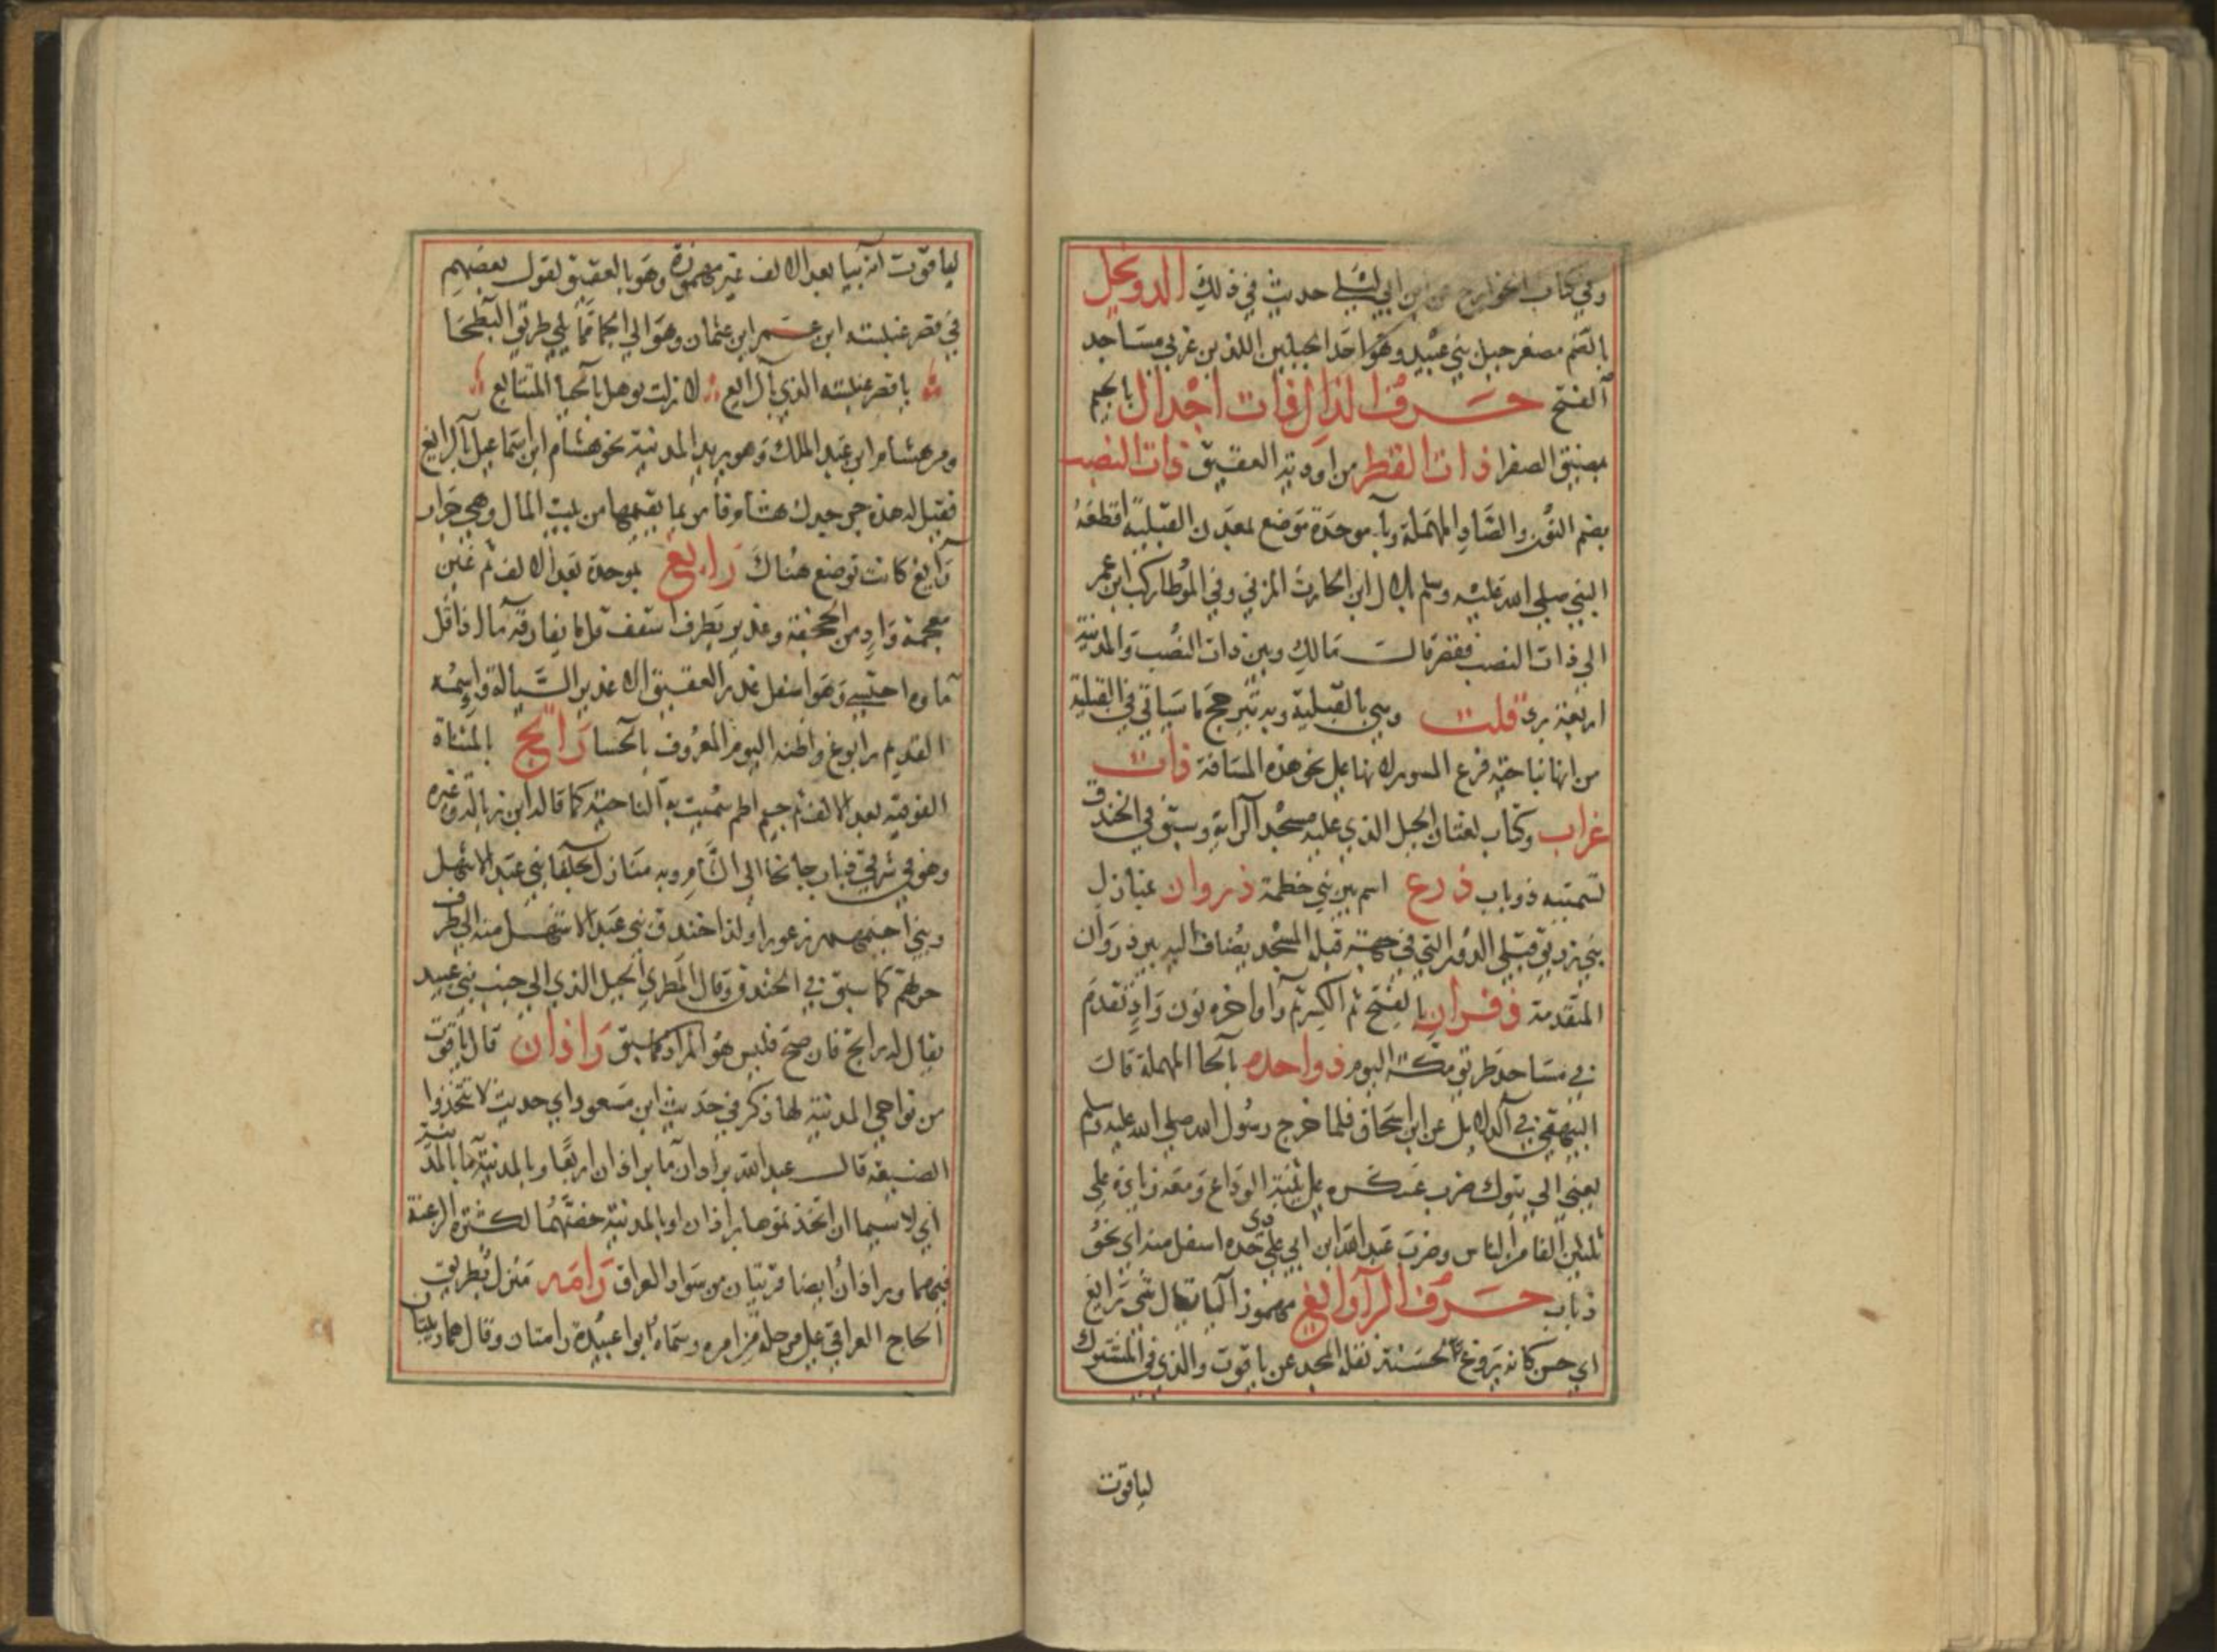 وفي كتاب الخوارج عن ابن ابي ليلى حديث في ذلك الدويخل
بالضم مصغر جبل بني عبيد وهو احد الجبلين اللذين غربي مساجد
الفتح حرف الذال ذات اجدال بالجيم
بمضيق الصفرا ذات القطر من اودية العقيق ذات النصب
بضم النون والصاد المهملة وبا موحدة موضع بمعدن القبلية اقطعه
النبي صلى الله عليه وسلم بلال ابن الحارث المزني وفي الموطا ركب ابن عمر
الى ذات النصب فقصر قال مالك وبين ذات النصب والمدينة
اربعة برد قلت وهي بالقبلية وبه يترجح ما سياتي في القبلية
من انها بناحية فرع المسور لانها على نحو هذه المسافة ذات
غراب وكتاب لغتان الجبل الذي عليه مسجد الراية وسبق في الخندق
تسميته ذوباب ذرع اسم بير بني خطمة ذروان عنازل
بني زريق قبلي الدور التي في جهة قبلة المسجد يضاف اليه بير ذروان
المتقدمة ذفران بالفتح ثم الكسر ثم را واخره نون واد تقدم
في مساجد طريق مكة اليوم ذواحده بالحا المهملة قال
البيهقي في الدلايل عن ابن اسحاق فلما خرج رسول الله صلى الله عليه وسلم
يعني الى تبوك ضرب عسكره على ثنية الوداع ومعه زيادة على
ثلثين الفا من الناس وضرب عبد الله ابن ابي على ذي حده اسفل منه اي نحو
ذباب حرف الرا رايغ مهموز اليا يقال شي رايغ
اي حسن كانه يروغ لحسنه نقله المجد عن ياقوت والذي في المشترك
لياقوت
لياقوت انه بيا بعد الالف غير مهموزة وهو بالعقيق لقول بعضهم
في قصر عنبسة ابن عمر ابن عثمان وهو الى الجما مما يلي طريق البطحا
يا قصر عنبسة الذي بالرايع لا زلت توهل بالحيا المتتابع
ومر هشام ابن عبد الملك وهو يريد المدينة نحو هشام ابن اسماعيل بالرايغ
فقيل له هذه جر جدك هشام فامر بما يقيمها من بيت المال وهي جرار
رايغ كانت توضع هناك رابغ بموحدة بعد الالف ثم غين
معجمة واد من الجحفة وغدير بطرف اسقف قل ما يفارقه ما اذا قل
ماوه احتسي وهو اسفل غدر العقيق الا غدير السيالة واسمه
القديم رابوغ واظنه اليوم المعروف بالحسا راتج بالمثناة
الفوقية بعد الالف ثم جيم اطم سميت به الناحية كما قاله ابن زبالة وغيره
وهو في شرقي ذباب جانحا الى الشام وبه منازل لحلفا بني عبد الاشهل
وبني اخيهم زعورا ولذا خندق بني عبد الاشهل منه الى طرف
حرتهم كما سبق في الخندق وقال المطري الجبل الذي الى جنب بني عبيد
يقال له راتج فان صح فليس هو المراد كما سبق راذان قال ياقوت
من نواحي المدينة لها ذكر في حديث ابن مسعود اي حديث لا تتخذوا
الضيعة قال عبد الله براذان ما براذان اربعا وبالمدينة ما بالمدينة
اي لا سيما ان اتخذتموها براذان او بالمدينة خصهما لكثرة الرغبة
فيهما وبراذان ايضا قريتان من سواد العراق رامه منزل بطريق
الحاج العراقي على مرحلة من امره وسماه ابو عبيدة رامتان وقال هما رمليتان